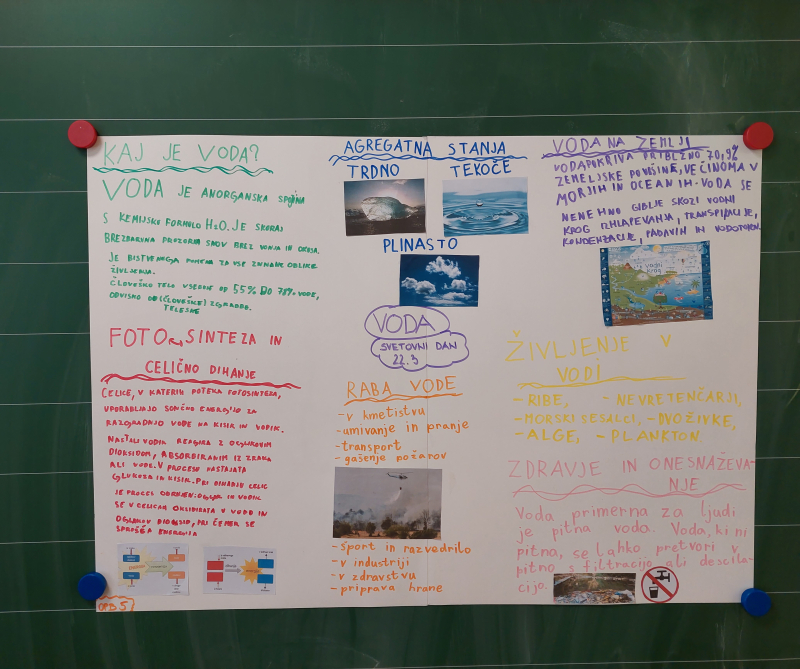 KAJ JE VODA?
VODA JE ANORGANSKA SPOJINA
S KEMIJSKO FORMULO H2O. JE SKORAJ
BREZBARVNA PROZORNA SNOV BREZ VONJA IN OKUSA.
JE BISTVENEGA POMENA ZA VSE ZNANE OBLIKE
ŽIVLJENJA.
ČLOVEŠKO TELO VSEBUJE OD 55% DO 78% VODE,
ODVISNO OD (ČLOVEŠKE) ZGRADBE.
TELESNE
FOTOSINTEZA IN
CELIČNO DIHANJE
CELICE, V KATERIH POTEKA FOTOSINTEZA,
UPORABLJAJO SONČNO ENERGIJO ZA
RAZGRADNJO VODE NA KISIK IN VODIK.
NASTALI VODIK REAGIRA Z OGLJIKOVIM
DIOKSIDOM, ABSORBIRANIM IZ ZRAKA
ALI VODE. V PROCESU NASTAJATA
GLUKOZA IN KISIK. PRI DIHANJU CELIC
JE PROCES OBRNJEN: OGLJIK IN VODIK
SE V CELICAH OKSIDIRATA V VODO IN
OGLJIKOV DIOKSID, PRI ČEMER SE
SPROŠČA ENERGIJA
OPB 5
AGREGATNA STANJA
TRDNO TEKOČE
PLINASTO
VODA
SVETOVNI DAN
22.3
RABA VODE
-v kmetistvu
-umivanje in pranje
-transport
-gašenje požarov
-šport in razvedrilo
-v industriji
-v zdravstvu
-priprava hrane
VODA NA ZEMLJI
VODA POKRIVA PRIBLIŽNO 70,9%
ZEMELJSKE POVRŠINE, VEČINOMA V
MORJIH IN OCEANIH. VODA SE
NENEHNO GIBLJE SKOZI VODNI
KROG IZHLAPEVANJA, TRANSPIRACIJE,
KONDENZACIJE, PADAVIN IN VODOTOKOV.
vodni
krog
ŽIVLJENJE V
VODI
-RIBE, -NEVRETENČARJI,
-MORSKI SESALCI, -DVOŽIVKE,
-ALGE, -PLANKTON.
ZDRAVJE IN ONESNAŽEVA-
NJE
Voda primerna za ljudi
je pitna voda. Voda, ki ni
pitna, se lahko pretvori v
pitno s filtracijo ali destila-
cijo.